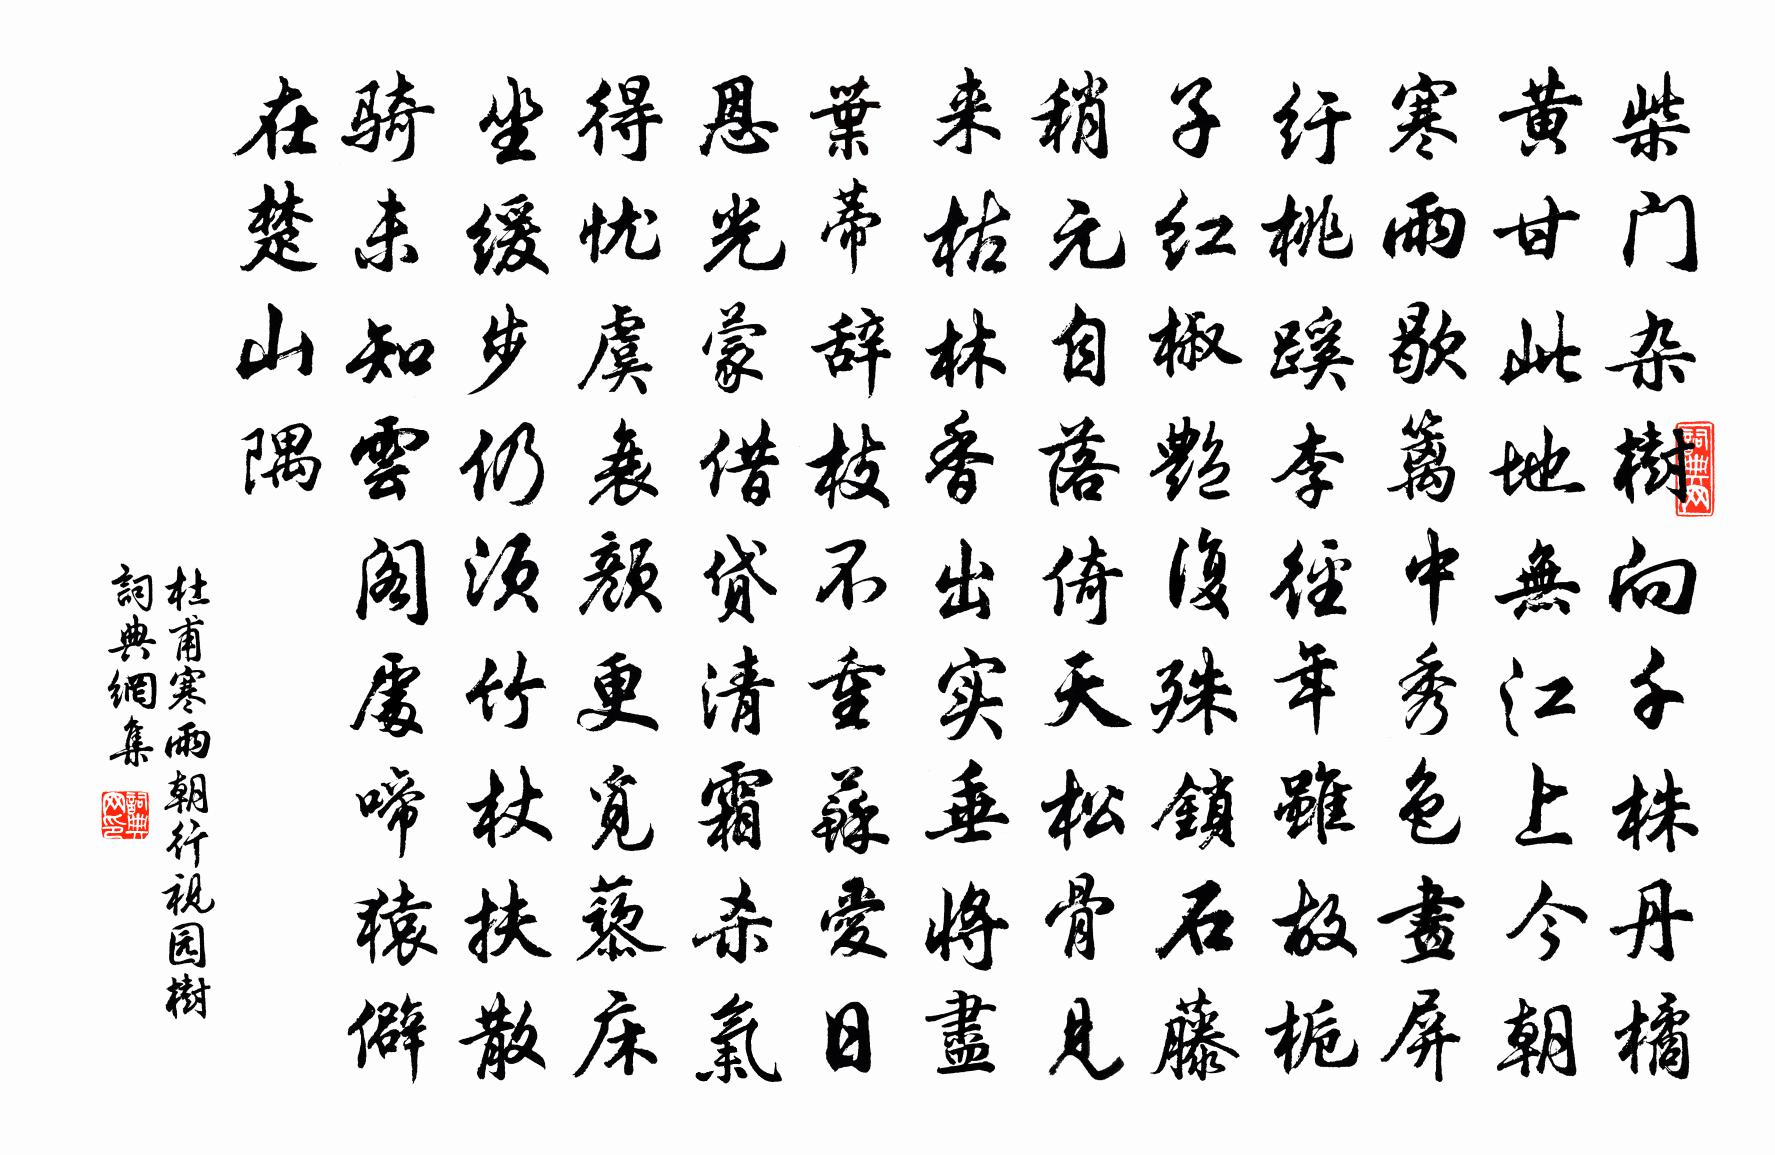 柴门杂樹向千株丹橘
黄甘此地無江上今朝
寒雨歇篱中秀色畫屏
纡桃蹊李徑年雖故栀
子红椒艷復殊鎖石藤
稍元自落倚天松骨見
来枯林香出实垂将盡
葉蒂辞枝不重蘇愛日
恩光蒙借贷清霜杀氣
得忧虞衰颜更觅藜床
坐缓步仍须竹杖扶散
骑未知雲阁處啼猿僻
在楚山隅
杜甫寒雨朝行视园樹
詞典網集
詞典网
詞典网印